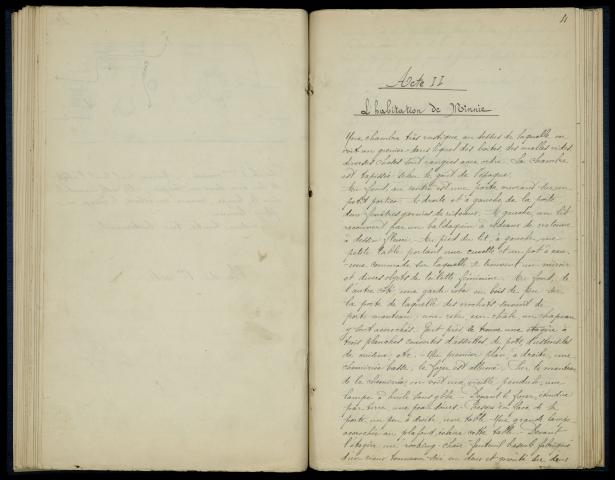 4
Acte II
L'habitation de Minnie
Une chambre très rustique au dessus de laquelle on
voit un grenier dans lequel des boîtes, des malles vides
diverses choses sont rangées avec ordre. La chambre
est tapissée selon le goût de l'époque.
Au fond, au centre est une porte ouvrant sur un
petit portico. A droite et à gauche de la porte
deux fenêtres garnies de rideaux. A gauche, un lit
recouvert par un baldaquin à rideaux de cretonne
à dessin fleuri. Au pied du lit, à gauche, une
petite table portant une cuvette et un pot à eau
une commode sur laquelle se trouvent un miroir
et divers objets de toilette féminine. Au fond, de
l'autre côté une garde robe en bois de sur
la porte de laquelle des crochets servent de
porte manteau; une robe, un châle, un chapeau
y sont accrochés. Tout près se trouve une étagère à
trois planches couvertes d'assiettes, de pots, d'ustensiles
de cuisine, etc. Au premier plan, à droite, une
cheminée basse, le foyer est allumé. Sur le manteau
de la cheminée on voit une vieille pendule, une
lampe à huile sans globe. Devant le foyer, étendue
par terre une peau d'ours. Presque en face de la
porte, un peu à droite, une table. Une grande lampe
accrochée au plafond, éclaire cette table. Devant
l'étagère un rocking-chair fauteuil
d'un vieux tonneau scié en deux et monté sur deux